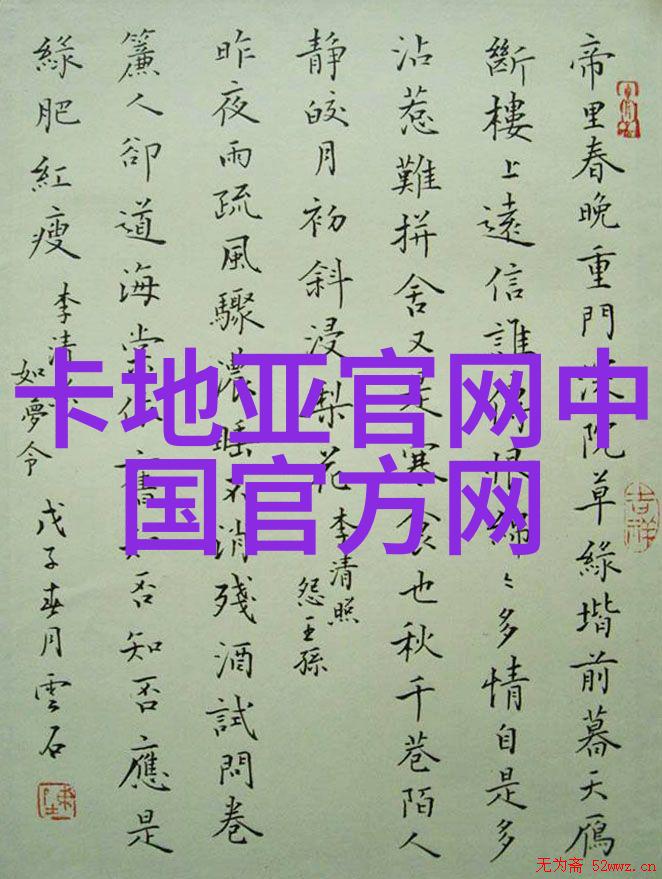 帝里春晚重門深院草緑堦前暮天鴈
斷樓上遠信誰傳恨綿〻多情自是多
沾惹難拼舍又是寒食也秋千巷陌人
靜皎月初斜浸梨花
李清照
怨王孫
昨夜雨疏風驟濃睡不消殘酒試問卷
簾人卻道海棠依舊知否知否應是
緑肥紅瘦
李清照
如夢令
戊子春月雲石
吉祥
卡地亚官网中
国官方网
无为斋 52wwz.cn